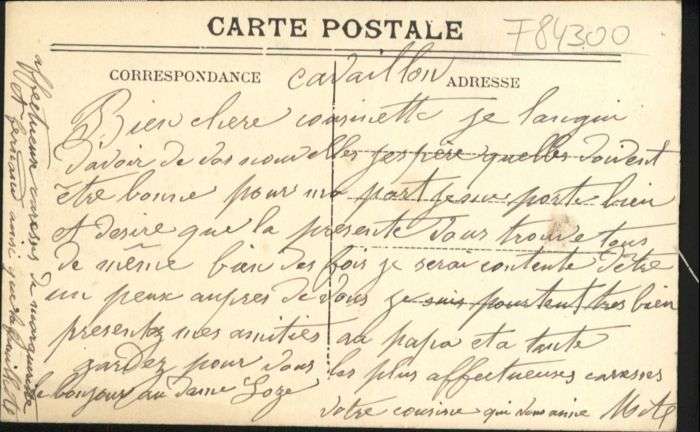 CARTE POSTALE
F84300
CORRESPONDANCE
cavaillon
ADRESSE
Bien chere cousinette je langui
d'avoir de vos nouvelles j'espère quelles doivent
être bonne pour ma part je me porte bien
et desire que la présente vous trouve tous
de même bien des fois je serai contente d'être
un peux aupres de vous je suis pourtent tres bien
presentez mes amitiés au papa et a tante
gardez pour vous les plus affectueuses caresses
le bonjour au dame Loze
votre cousine qui vous aime
affectueux caresses de
et fernand ainsi que la famille